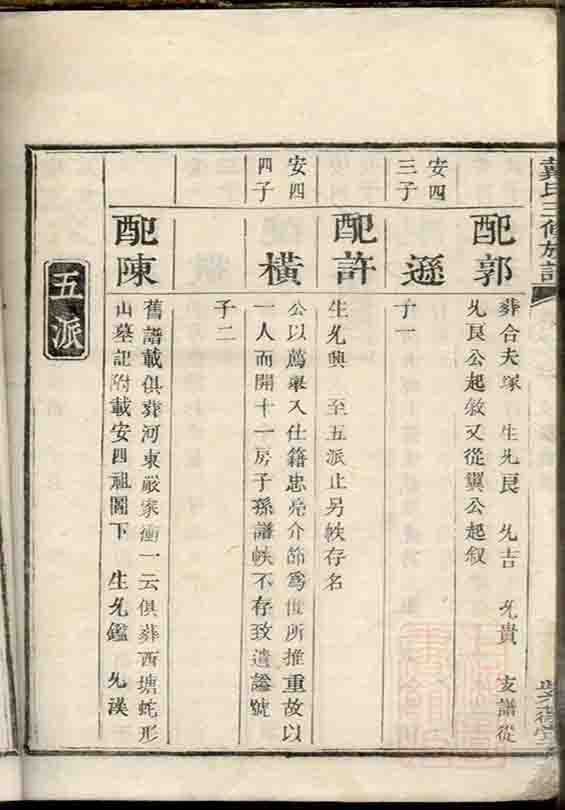 戴氏三修族譜
配郭
葬合夫塚 生允良 允吉 允貴 支譜從
允良公起敘又從翼公起叙
安四
三子
遜
子一
配許
生允興 至五派止另帙存名
安四
四子
橫
公以薦舉入仕籍忠亮介節為世所推重故以
一人而開十一房子孫譜帙不存致遺謚號
子二
配陳
舊譜載俱葬河東嚴家衝一云俱葬西塘蛇形
山墓記附載安四祖圖下 生允鑑 允漢
五派